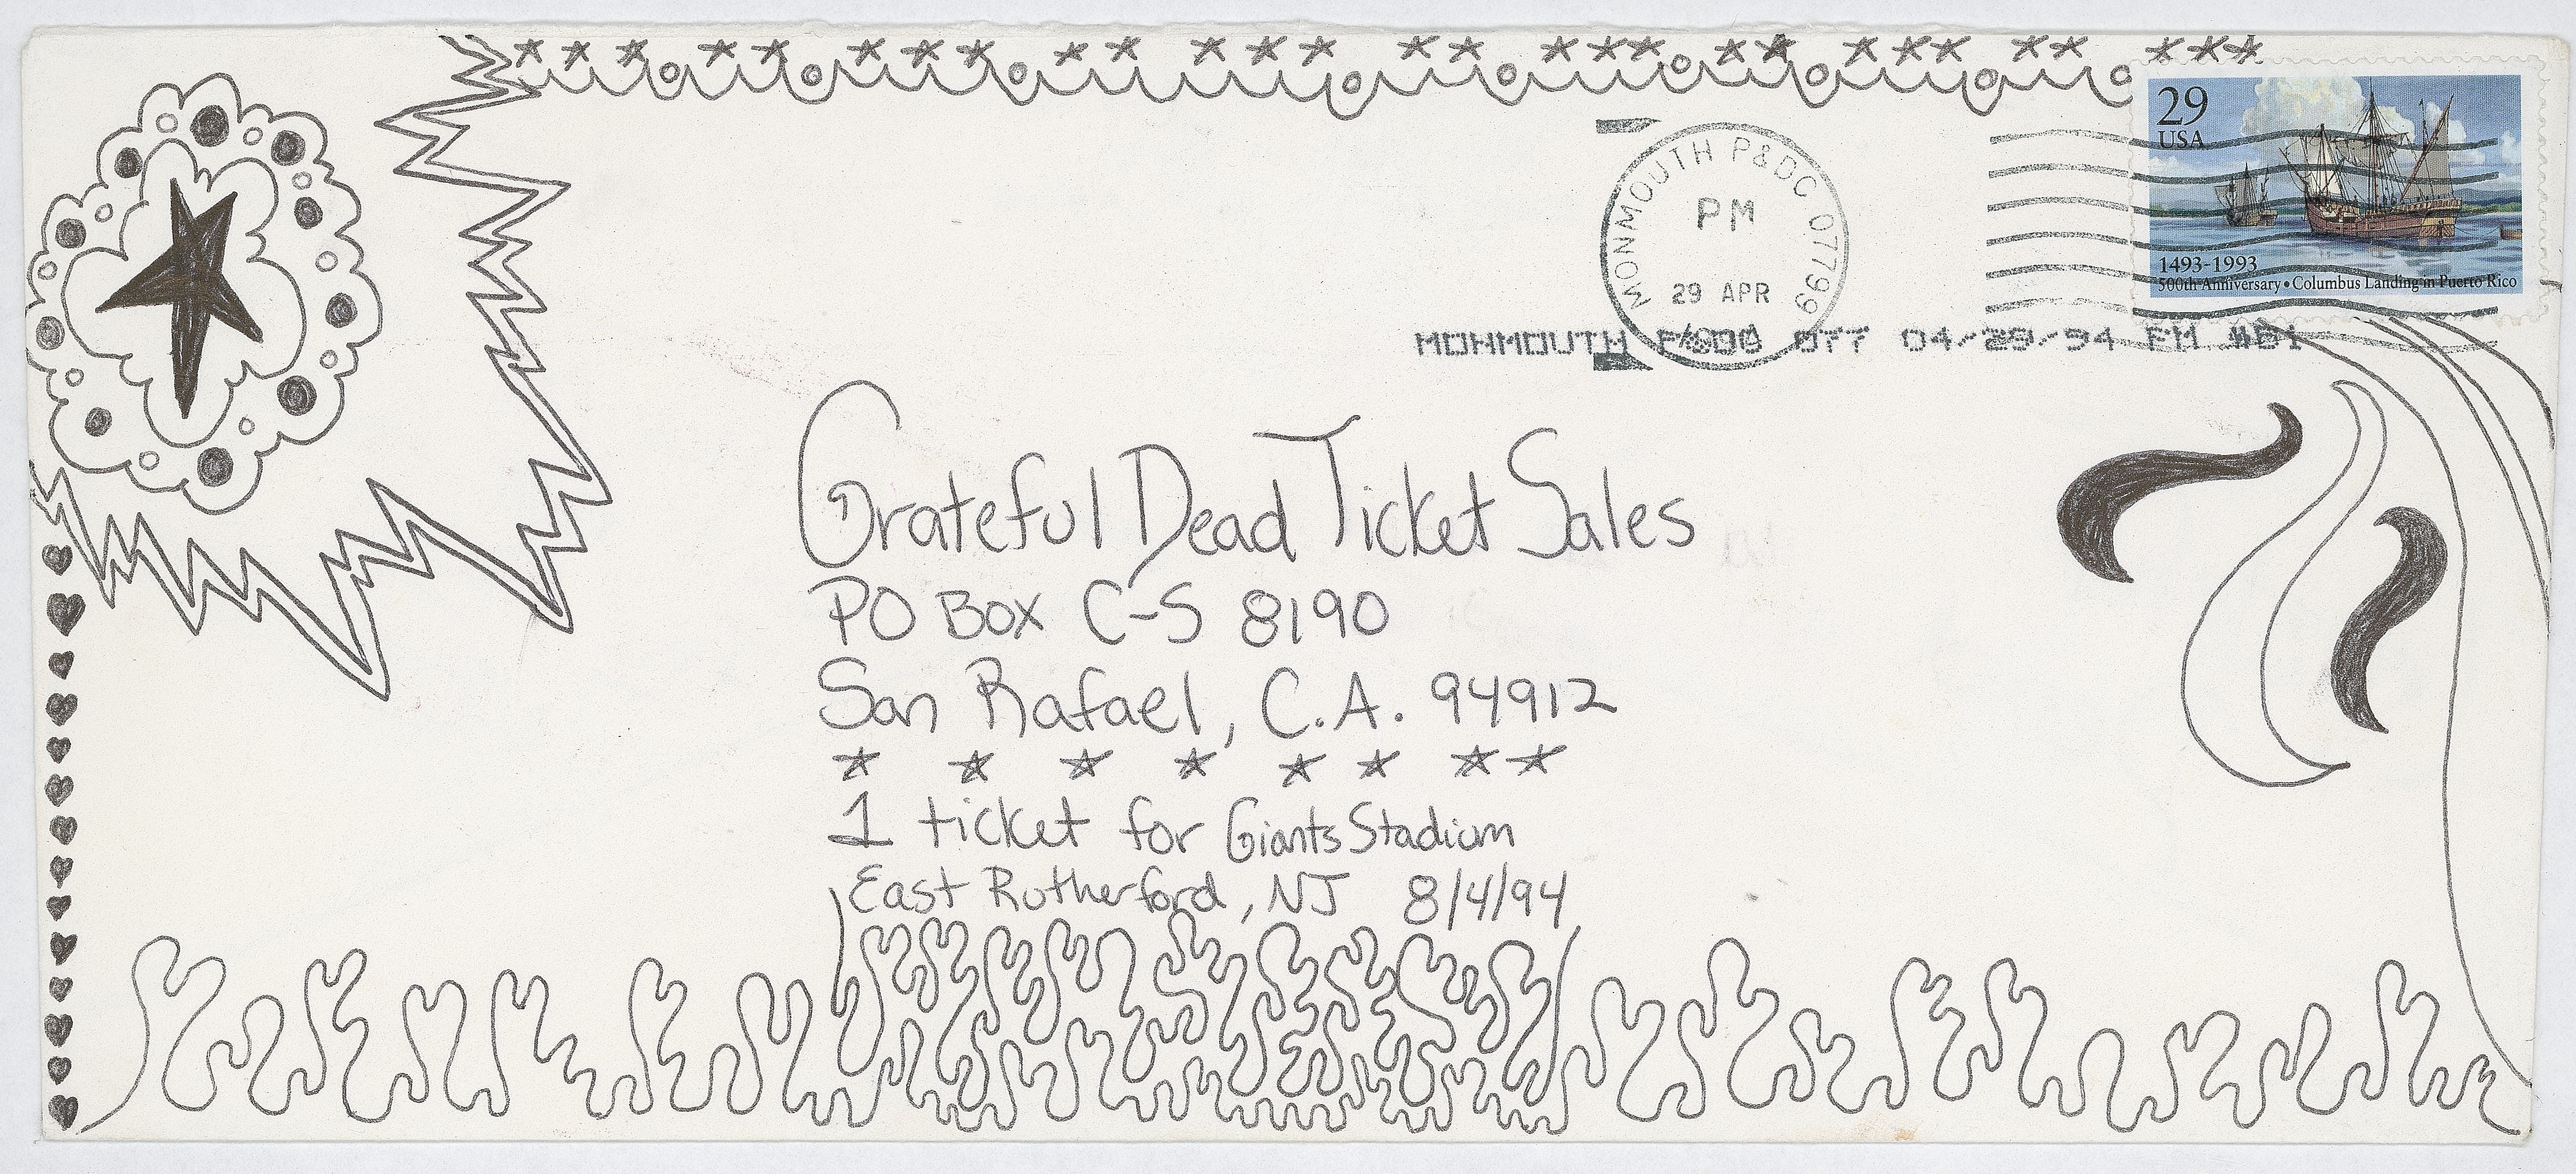 29
USA
1493-1993
500th Anniversary • Columbus Landing in Puerto Rico
MONMOUTH P&DC 07799
PM
29 APR
MONMOUTH P&DC 077 04/29/94 PM #01
Grateful Dead Ticket Sales
PO Box C-S 8190
San Rafael, C.A. 94912
1 ticket for Giants Stadium
East Rutherford, NJ 8/4/94